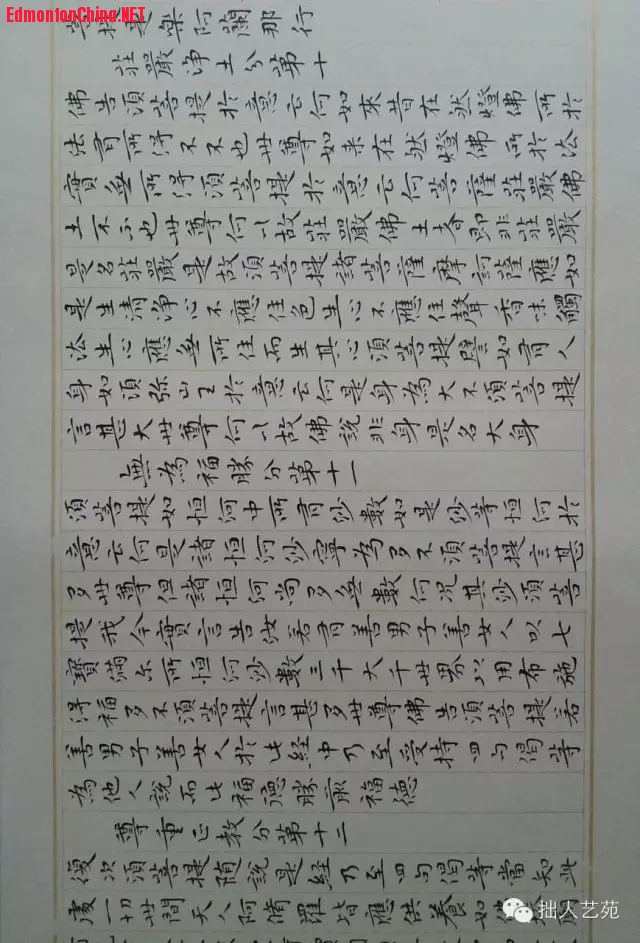 EdmontonChina.NET
菩提是樂阿蘭那行
莊嚴淨土分第十
佛告須菩提於意云何如來昔在然燈佛所於
法有所得不不也世尊如来在然燈佛所於法
實無所得須菩提於意云何菩薩莊嚴佛
土不不也世尊何以故莊嚴佛土者即非莊嚴
是名莊嚴是故須菩提諸菩薩摩訶薩應如
是生清淨心不應住色生心不應住聲香味觸
法生心應無所住而生其心須菩提譬如有人
身如須弥山王於意云何是身為大不須菩提
言甚大世尊何以故佛說非身是名大身
無為福勝分第十一
須菩提如恒河中所有沙數如是沙等恒河於
意云何是諸恒河沙寧為多不須菩提言甚
多世尊但諸恒河尚多無數何況其沙須菩
提我今實言告汝若有善男子善女人以七
寶滿尔所恒河沙數三千大千世界以用布施
得福多不須菩提言甚多世尊佛告須菩提若
善男子善女人於此経中乃至受持四句偈等
為他人說而此福德勝前福德
尊重正教分第十二
復次須菩提随說是経乃至四句偈等當知此
處一切世間天人阿脩羅皆應供養如佛
拙人艺苑